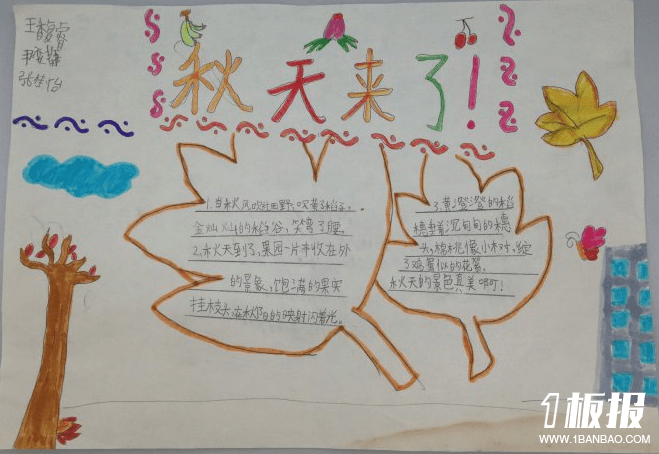 秋天来了!
1.当秋风吹过田野,吹黄了稻子。
金灿灿的稻谷,笑弯了腰。
2.秋天到了,果园一片丰收在外
的景象,饱满的果实
挂枝头,在秋阳的映射闪着光。
3.黄澄澄的稻
穗垂着沉甸甸的穗
头,棉桃像小树,绽
了鸡蛋似的花絮。
秋天的景色真美啊!
1板报
WWW.1BANBAO.COM